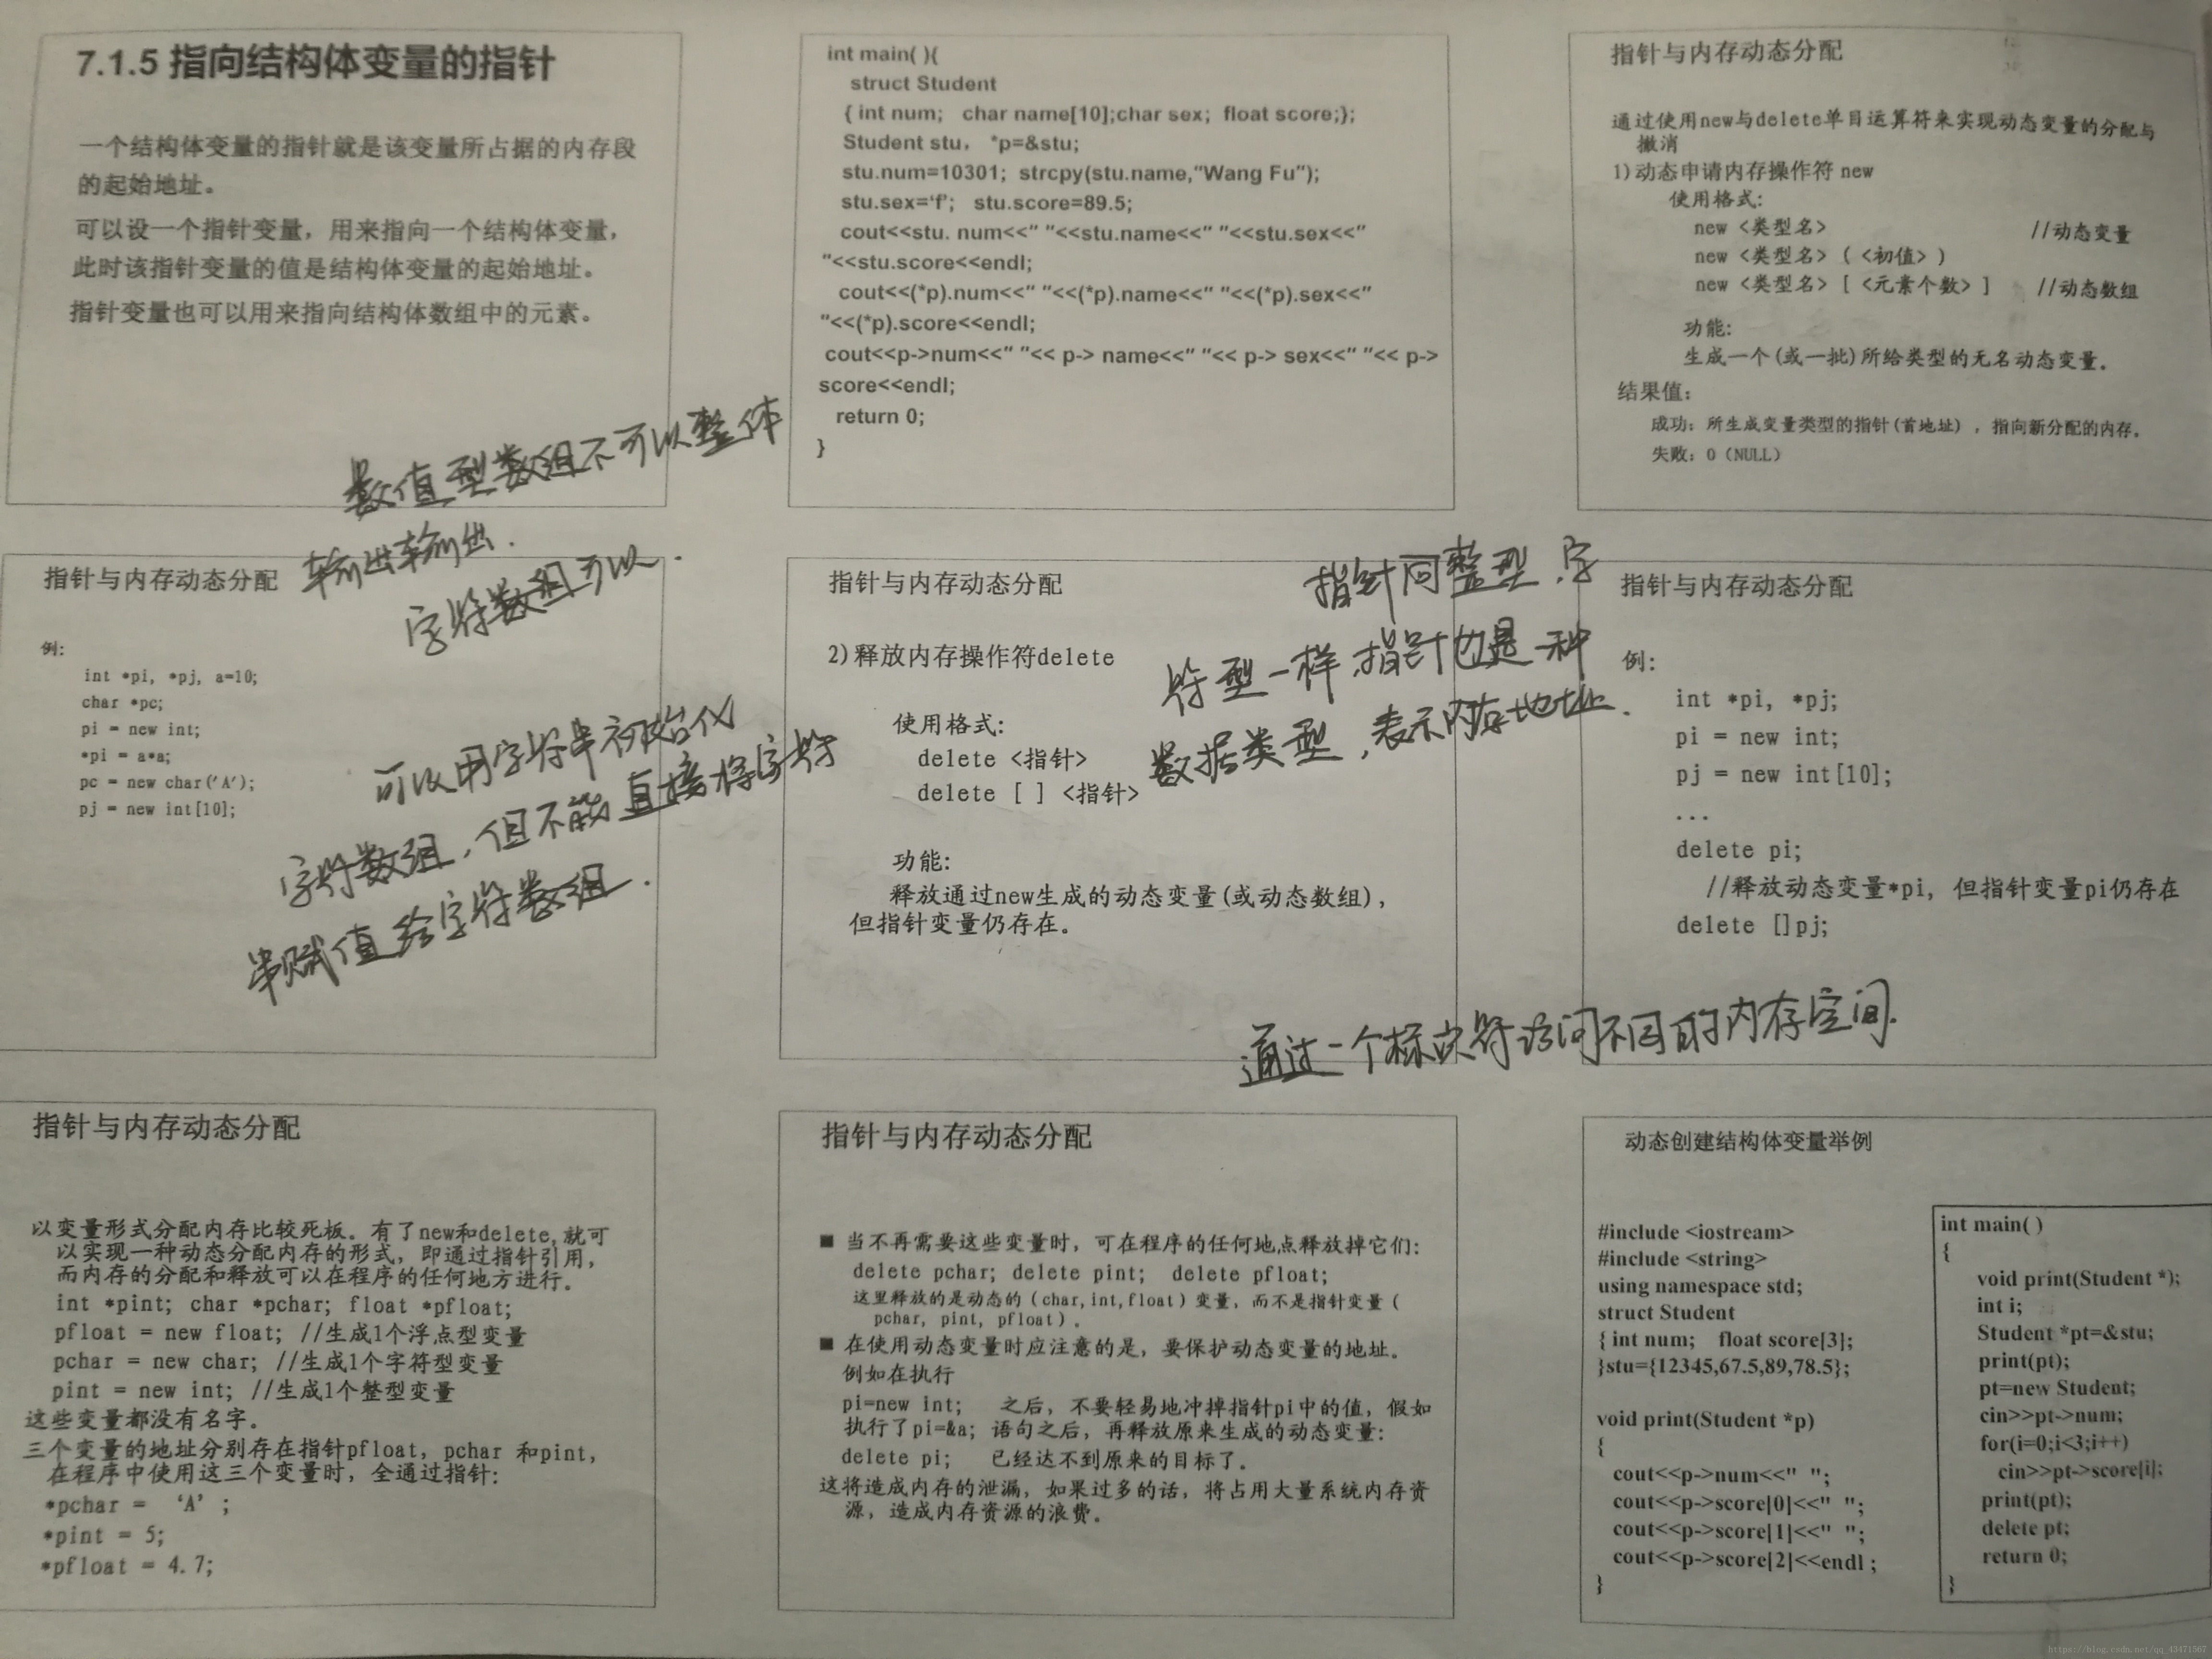 7.1.5 指向结构体变量的指针
一个结构体变量的指针就是该变量所占据的内存段
的起始地址。
可以设一个指针变量，用来指向一个结构体变量，
此时该指针变量的值是结构体变量的起始地址。
指针变量也可以用来指向结构体数组中的元素。
数值型数组不可以整体
输出.
字符数组可以.
int main( ){
struct Student
{ int num; char name[10];char sex; float score;};
Student stu， *p=&stu;
stu.num=10301; strcpy(stu.name,"Wang Fu");
stu.sex='f'; stu.score=89.5;
cout<<stu. num<<" "<<stu.name<<" "<<stu.sex<<"
"<<stu.score<<endl;
cout<<(*p).num<<" "<<(*p).name<<" "<<(*p).sex<<"
"<<(*p).score<<endl;
cout<<p->num<<" "<< p-> name<<" "<< p-> sex<<" "<< p->
score<<endl;
return 0;
}
指针与内存动态分配
通过使用new与delete单目运算符来实现动态变量的分配与
撤消
1)动态申请内存操作符 new
使用格式:
new <类型名> //动态变量
new <类型名> ( <初值> )
new <类型名> [ <元素个数> ] //动态数组
功能:
生成一个(或一批)所给类型的无名动态变量。
结果值:
成功: 所生成变量类型的指针(首地址) ，指向新分配的内存。
失败: 0 (NULL)
指针与内存动态分配
例:
int *pi, *pj, a=10;
char *pc;
pi = new int;
*pi = a*a;
pc = new char('A');
pj = new int[10];
可以用字符串初始化
字符数组，但不能直接将字符
串赋值给字符数组.
指针与内存动态分配
2)释放内存操作符delete
使用格式:
delete <指针>
delete [ ] <指针>
功能:
释放通过new生成的动态变量(或动态数组)，
但指针变量仍存在。
指针同整型.字
符型一样.指针也是一种
数据类型,表示内存地址.
指针与内存动态分配
例:
int *pi, *pj;
pi = new int;
pj = new int[10];
...
delete pi;
//释放动态变量*pi, 但指针变量pi仍存在
delete []pj;
通过一个标识符访问不同的内存空间.
指针与内存动态分配
以变量形式分配内存比较死板。有了new和delete,就可
以实现一种动态分配内存的形式，即通过指针引用，
而内存的分配和释放可以在程序的任何地方进行。
int *pint; char *pchar; float *pfloat;
pfloat = new float; //生成1个浮点型变量
pchar = new char; //生成1个字符型变量
pint = new int; //生成1个整型变量
这些变量都没有名字。
三个变量的地址分别存在指针pfloat, pchar 和pint,
在程序中使用这三个变量时，全通过指针:
*pchar = 'A' ;
*pint = 5;
*pfloat = 4.7;
指针与内存动态分配
■ 当不再需要这些变量时，可在程序的任何地点释放掉它们:
delete pchar; delete pint; delete pfloat;
这里释放的是动态的 (char,int,float) 变量，而不是指针变量 (
pchar, pint, pfloat) 。
■ 在使用动态变量时应注意的是，要保护动态变量的地址。
例如在执行
pi=new int; 之后，不要轻易地冲掉指针pi中的值，假如
执行了pi=&a; 语句之后，再释放原来生成的动态变量:
delete pi; 已经达不到原来的目标了。
这将造成内存的泄漏，如果过多的话，将占用大量系统内存资
源，造成内存资源的浪费。
动态创建结构体变量举例
#include <iostream>
#include <string>
using namespace std;
struct Student
{ int num; float score[3];
}stu={12345,67.5,89,78.5};
void print(Student *p)
{
cout<<p->num<<" ";
cout<<p->score[0]<<" ";
cout<<p->score[1]<<" ";
cout<<p->score[2]<<endl ;
}
int main( )
{
void print(Student *);
int i;
Student *pt=&stu;
print(pt);
pt=new Student;
cin>>pt->num;
for(i=0;i<3;i++)
cin>>pt->score[i];
print(pt);
delete pt;
return 0;
}
https://blog.csdn.net/qq_43471567